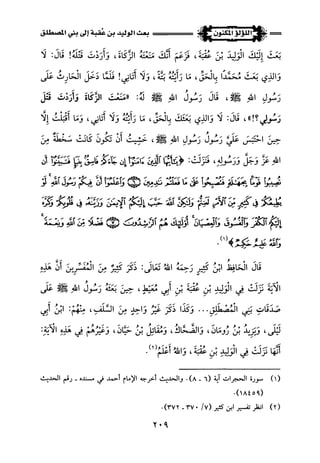 اللؤلؤ المكنون
بعث الوليد بن عُقبة إلى بني المصطلق
بَعَثَ إِلَيْكَ الْوَلِيدَ بْنَ عُقْبَةَ، فَزَعَمَ أَنَّكَ مَنَعْتَهُ الزَّكَاةَ، وَأَرَدْتَ قَتْلَهُ! قَالَ: لَا
وَالذِي بَعَثَ مُحَمَّدًا بِالْحَقِّ، مَا رَأَيْتُهُ بَتَّةً، وَلَا أَتَانِي! فَلَمَّا دَخَلَ الْحَارِثُ عَلَى
رَسُولِ اللهِ ﷺ، قَالَ رَسُولُ اللهِ ﷺ لَهُ: «مَنَعْتَ الزَّكَاةَ وَأَرَدْتَ قَتْلَ
رَسُولِي؟!»، قَالَ: لَا وَالذِي بَعَثَكَ بِالْحَقِّ، مَا رَأَيْتُهُ وَلَا أَتَانِي، وَمَا أَقْبَلْتُ إِلَّا
حِينَ احْتَبَسَ عَلَيَّ رَسُولُ رَسُولِ اللهِ ﷺ، خَشِيتُ أَنْ تَكُونَ كَانَتْ سَخْطَةً مِنَ
اللهِ عَزَّ وَجَلَّ وَرَسُولِهِ، فَنَزَلَتْ: ﴿يَٰٓأَيُّهَا ٱلَّذِينَ ءَامَنُوٓاْ إِن جَآءَكُمْ فَاسِقُۢ بِنَبَإٖ فَتَبَيَّنُوٓاْ أَن
تُصِيبُواْ قَوْمَۢا بِجَهَٰلَةٖ فَتُصْبِحُواْ عَلَىٰ مَا فَعَلْتُمْ نَٰدِمِينَ ۝ وَٱعْلَمُوٓاْ أَنَّ فِيكُمْ رَسُولَ ٱللَّهِۚ لَوْ
يُطِيعُكُمْ فِي كَثِيرٖ مِّنَ ٱلْأَمْرِ لَعَنِتُّمْ وَلَٰكِنَّ ٱللَّهَ حَبَّبَ إِلَيْكُمُ ٱلْإِيمَٰنَ وَزَيَّنَهُۥ فِي قُلُوبِكُمْ وَكَرَّهَ
إِلَيْكُمُ ٱلْكُفْرَ وَٱلْفُسُوقَ وَٱلْعِصْيَانَۚ أُوْلَٰٓئِكَ هُمُ ٱلرَّٰشِدُونَ ۝ فَضْلٗا مِّنَ ٱللَّهِ وَنِعْمَةٗۚ
وَٱللَّهُ عَلِيمٌ حَكِيمٞ﴾(١).
قَالَ الْحَافِظُ ابْنُ كَثِيرٍ رَحِمَهُ اللهُ تَعَالَى: ذَكَرَ كَثِيرٌ مِنَ الْمُفَسِّرِينَ أَنَّ هَذِهِ
الْآيَةَ نَزَلَتْ فِي الْوَلِيدِ بْنِ عُقْبَةَ بْنِ أَبِي مُعَيْطٍ، حِينَ بَعَثَهُ رَسُولُ اللهِ ﷺ عَلَى
صَدَقَاتِ بَنِي الْمُصْطَلِقِ... وَكَذَا ذَكَرَ غَيْرُ وَاحِدٍ مِنَ السَّلَفِ، مِنْهُمْ: ابْنُ أَبِي
لَيْلَى، وَيَزِيدُ بْنُ رُومَانَ، وَالضَّحَّاكُ، وَمُقَاتِلُ بْنُ حَيَّانَ، وَغَيْرُهُمْ فِي هَذِهِ الْآيَةِ:
أَنَّهَا نَزَلَتْ فِي الْوَلِيدِ بْنِ عُقْبَةَ، وَاللهُ أَعْلَمُ(٢).
(١) سورة الحجرات آية (٦ ـ ٨). والحديث أخرجه الإمام أحمد في مسنده ـ رقم الحديث
(١٨٤٥٩).
(٢) انظر تفسير ابن كثير (٧/ ٣٧٠، ٣٧٢).
٢٠٩